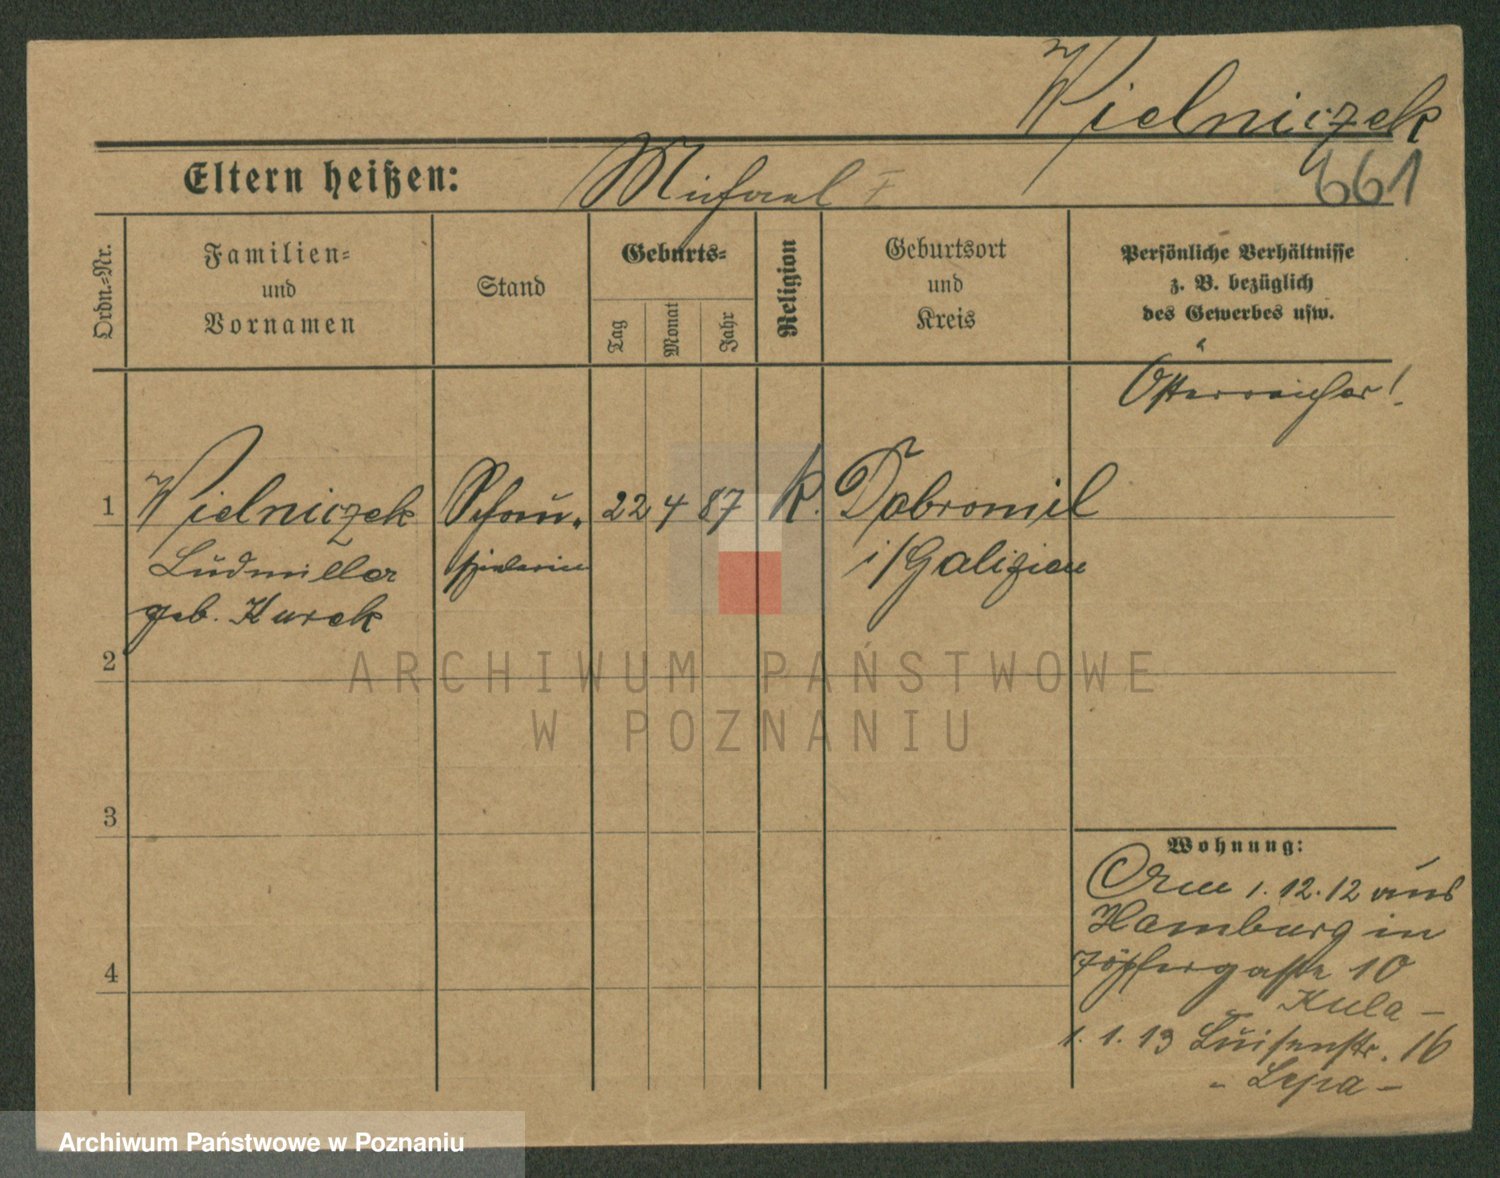 Wielniczek
Eltern heißen: Michael
661
Ordn.-Nr.
Familien-
und
Vornamen
Stand
Geburts-
Tag
Monat
Jahr
Religion
Geburtsort
und
Kreis
Persönliche Verhältnisse
z. B. bezüglich
des Gewerbes usw.
Österreicher!
1 Wielniczek Schau- 22 4 87 k. Dobromil
Ludmilla spielerin i/Galizien
geb. Kurek
2
3
4
Wohnung:
Am 1.12.12 aus
Hamburg in
Töpfergasse 10
Kula -
1.1.13 Luisenstr. 16
- Lepa -
ARCHIWUM PAŃSTWOWE
W POZNANIU
Archiwum Państwowe w Poznaniu